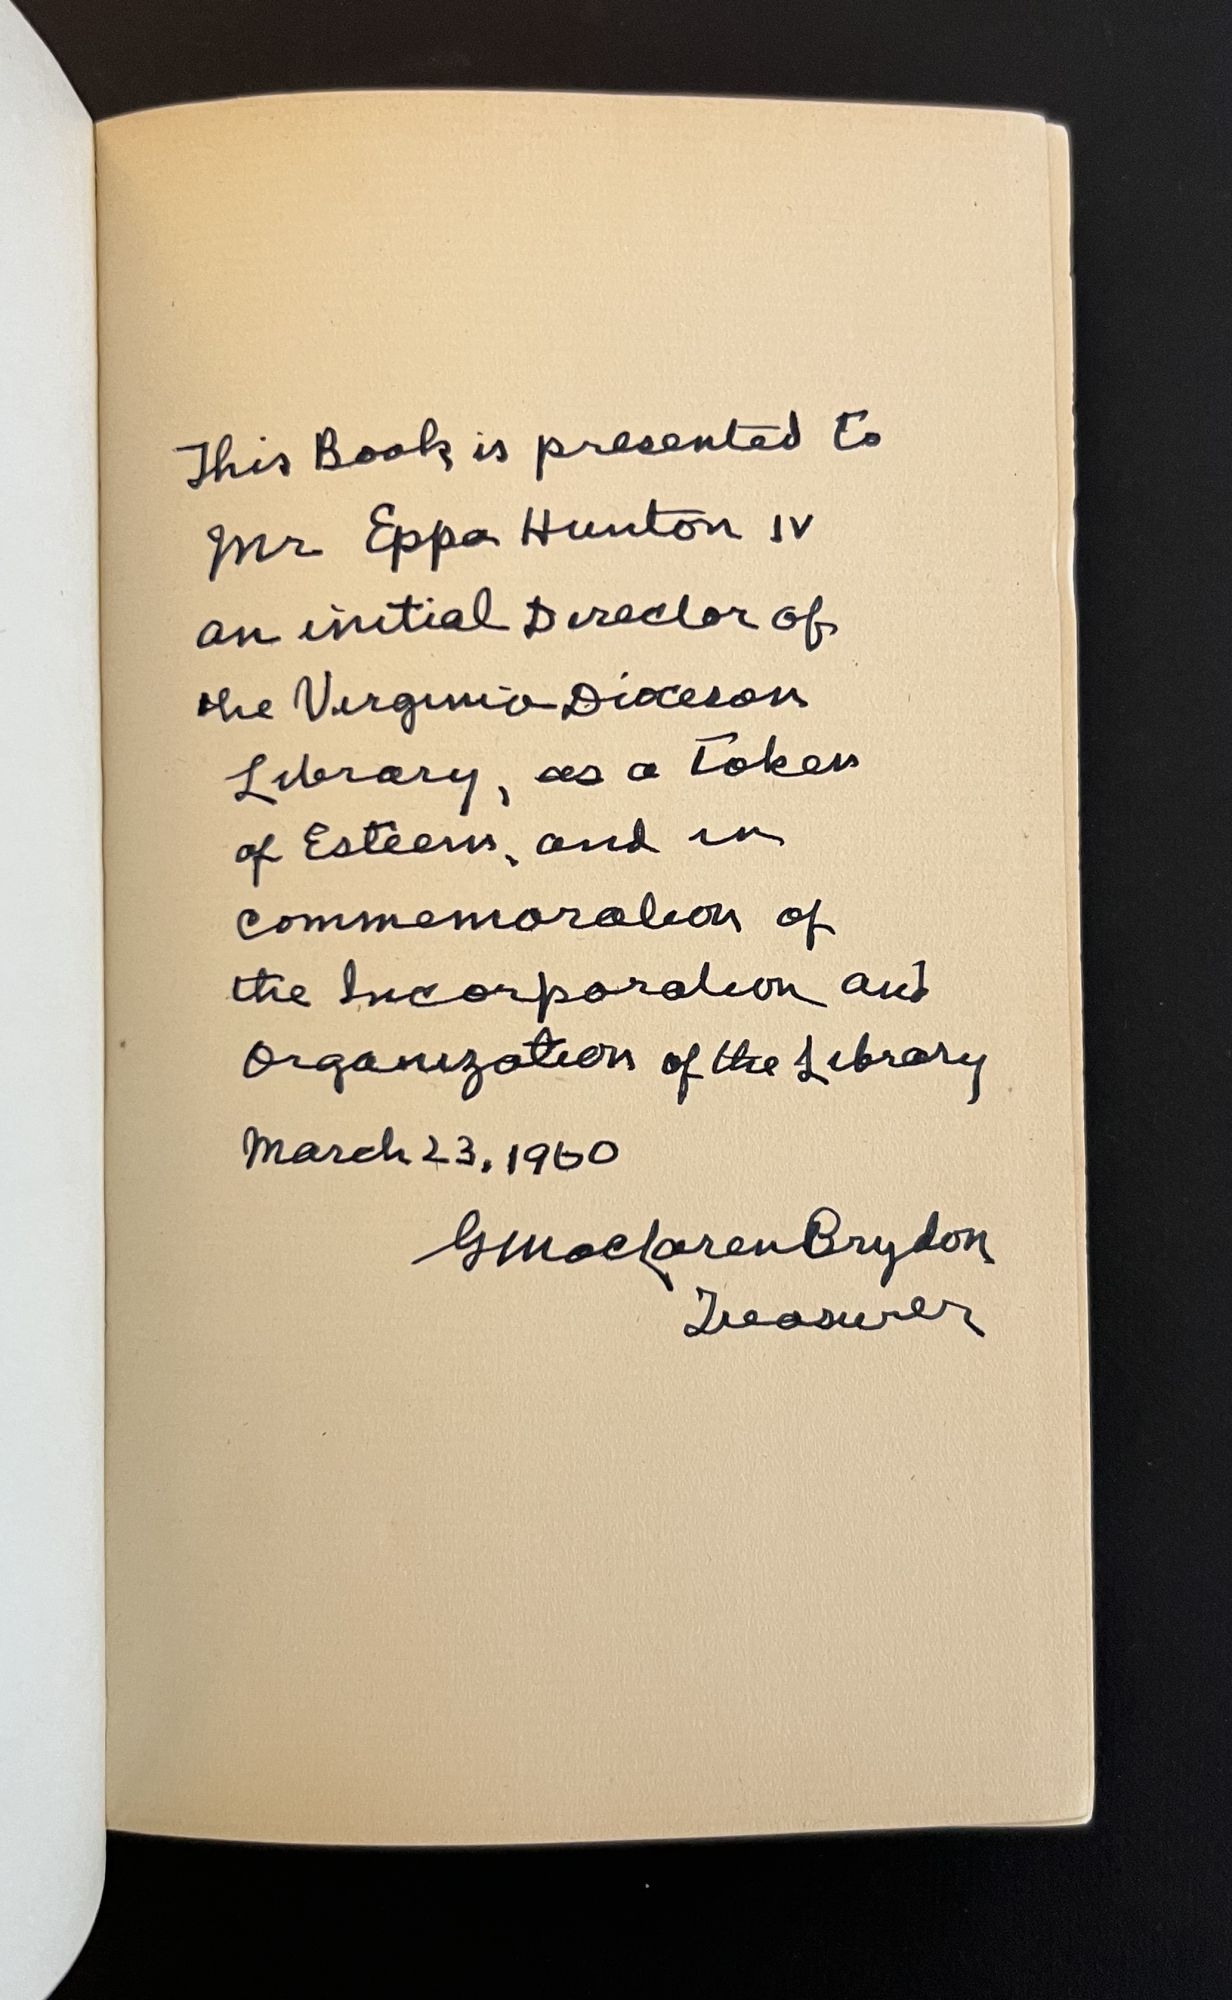 This Book is presented to
Mr Eppa Hunton IV
an initial Director of
the Virginia Diocesan
Library, as a Token
of Esteem, and in
commemoration of
the Incorporation and
Organization of the Library
March 23, 1960
G MacLaren Brydon
Treasurer